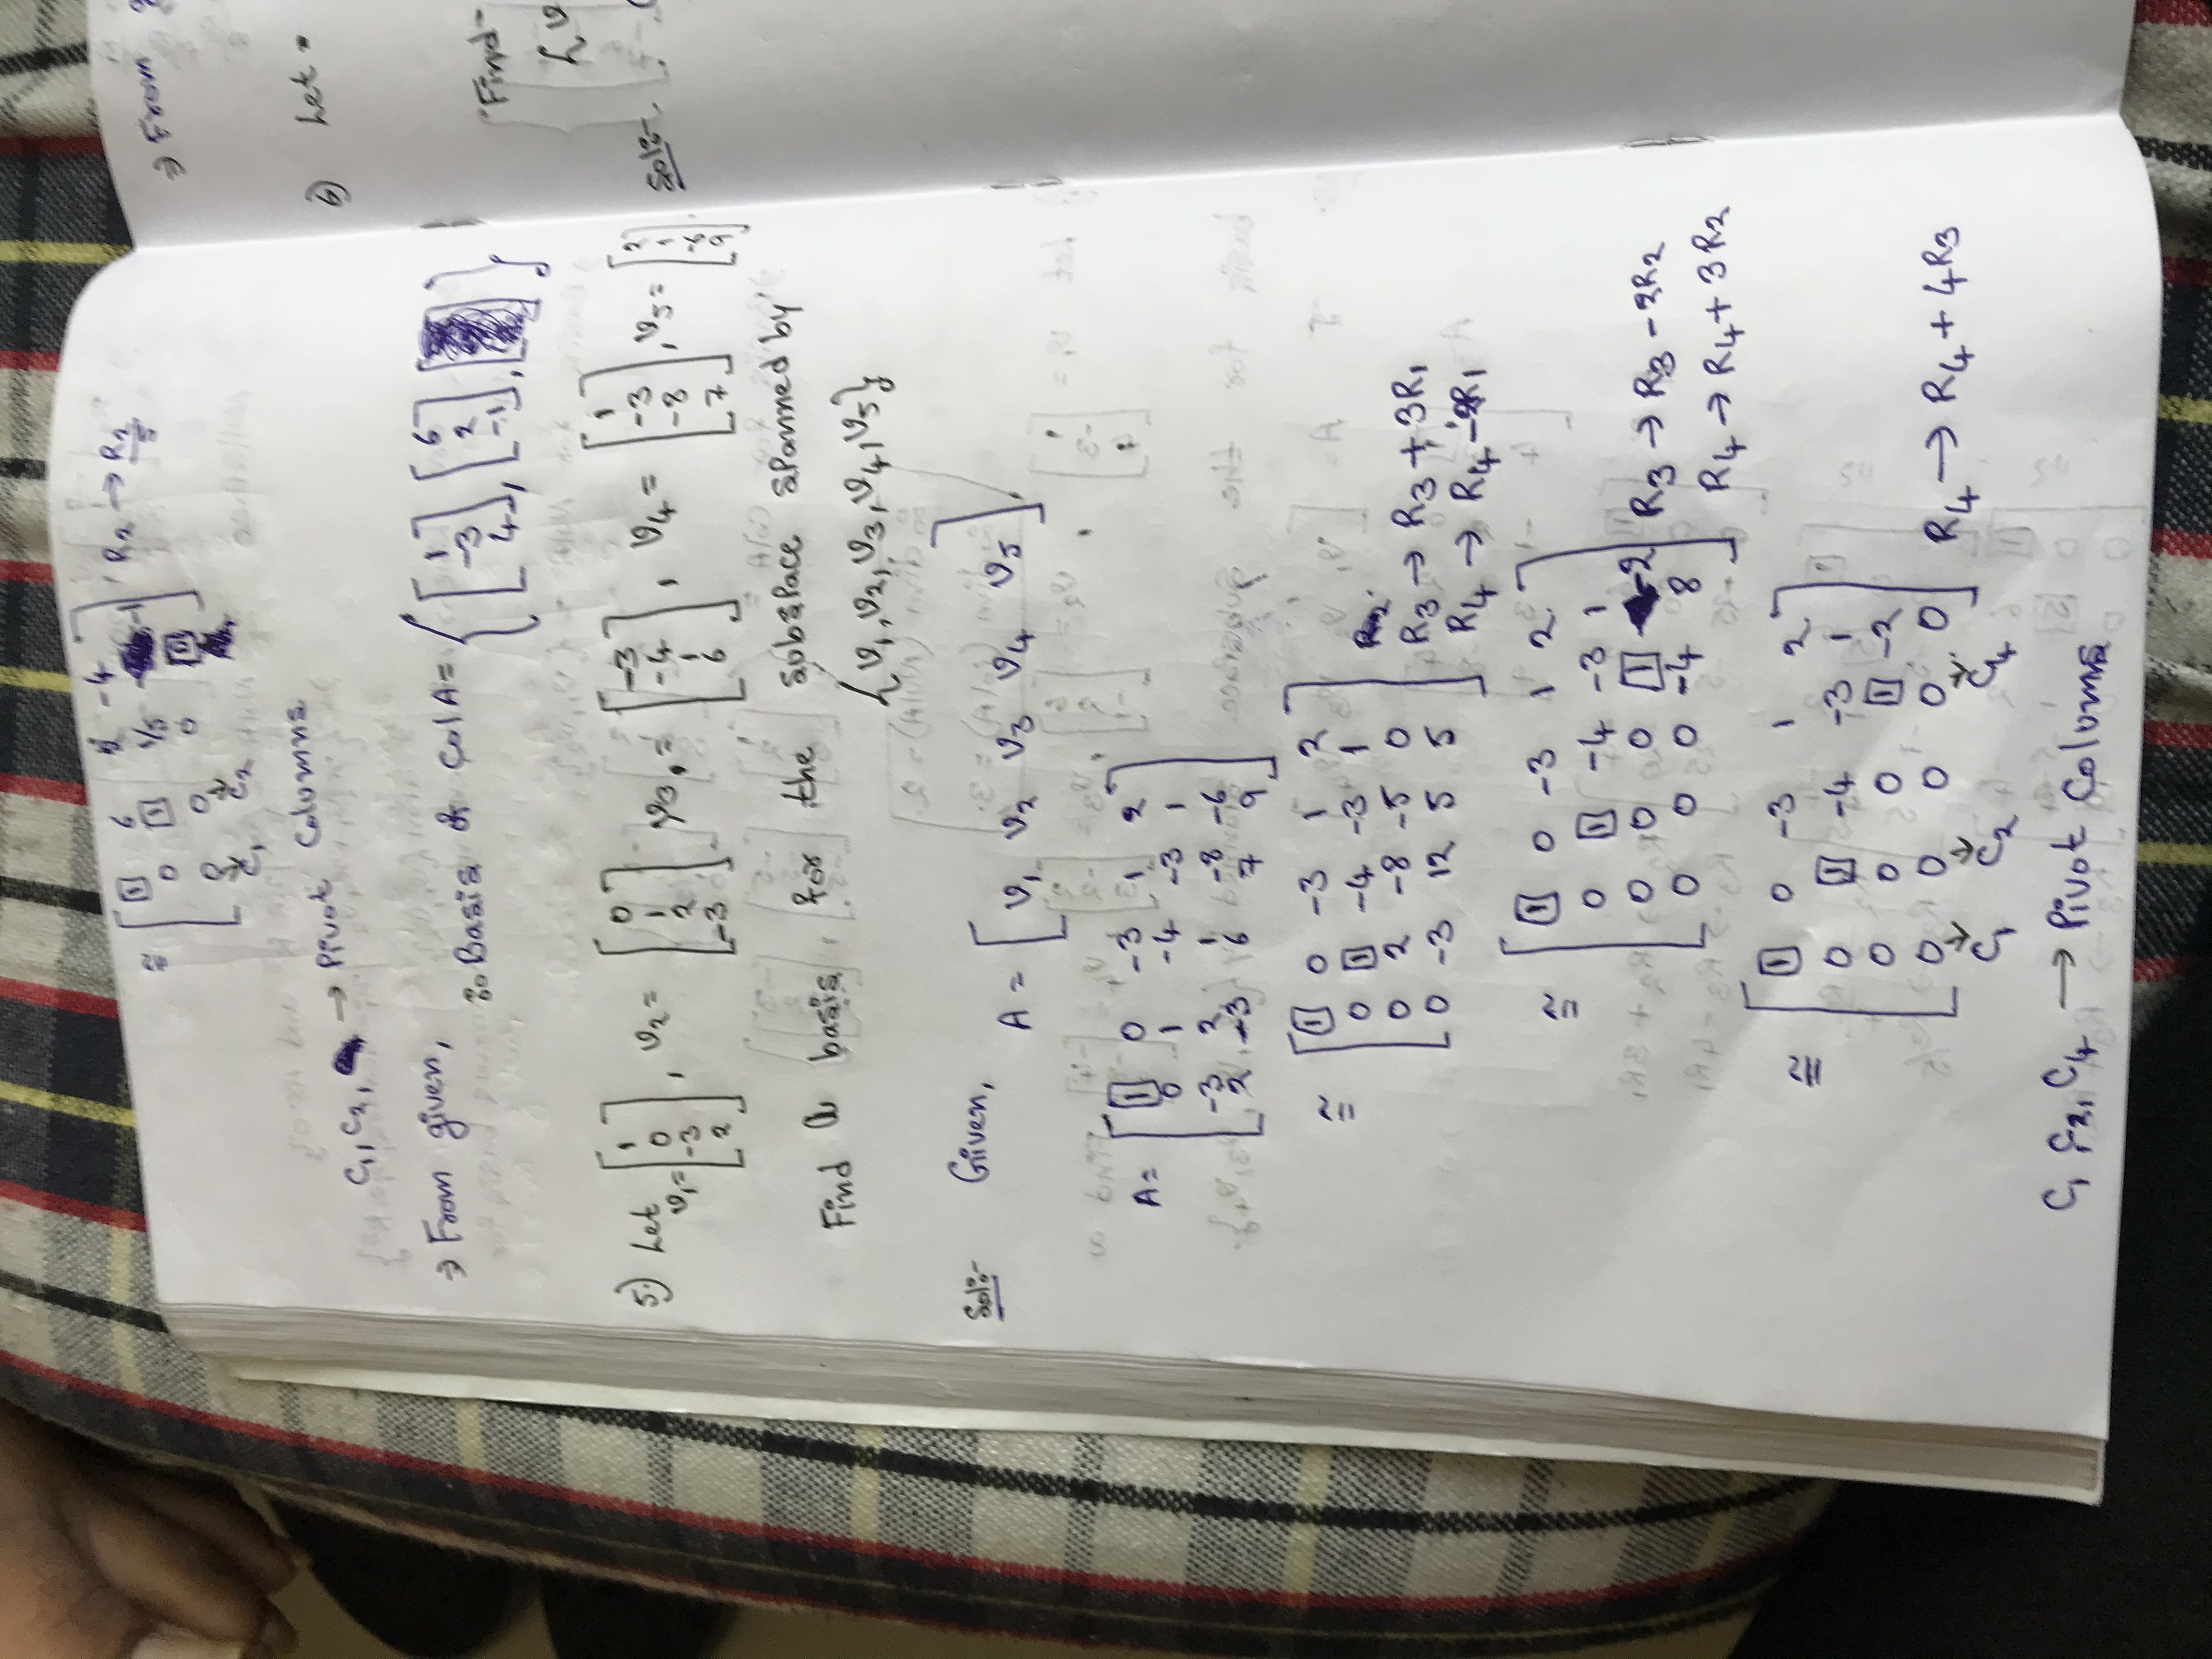 ≅ [ 1 6 2 -4
0 1 1/5 -1
0 0 0 0 ] R2 → R2/5
C1 C2
C1, C2, → Pivot Columns
⇒ From given,
∴ Basis of Col A = { [ 1 -3 4 ], [ 6 2 -1 ], }
5) Let v1 = [ 1 0 -3 2 ], v2 = [ 0 1 2 -3 ], v3 = [ -3 -4 1 6 ], v4 = [ 1 -3 -8 7 ], v5 = [ 2 1 -6 9 ]
Find a basis for the subspace spanned by
{v1, v2, v3, v4, v5}
Sol:- Given,
A = [ v1 v2 v3 v4 v5 ]
A = [ 1 0 -3 1 2
0 1 -4 -3 1
-3 2 1 -8 -6
2 -3 6 7 9 ]
≅ [ 1 0 -3 1 2
0 1 -4 -3 1
0 2 -8 -5 0 R3 → R3 + 3R1
0 -3 12 5 5 ] R4 → R4 - 2R1
≅ [ 1 0 -3 1 2
0 1 -4 -3 1
0 0 0 1 -2 R3 → R3 - 2R2
0 0 0 -4 8 ] R4 → R4 + 3R2
≅ [ 1 0 -3 1 2
0 1 -4 -3 1
0 0 0 1 -2
0 0 0 0 0 ] R4 → R4 + 4R3
C1 C2 C4
C1, C2, C4 → Pivot Columns
⇒ From
6) Let
Find
{v
Sol:-